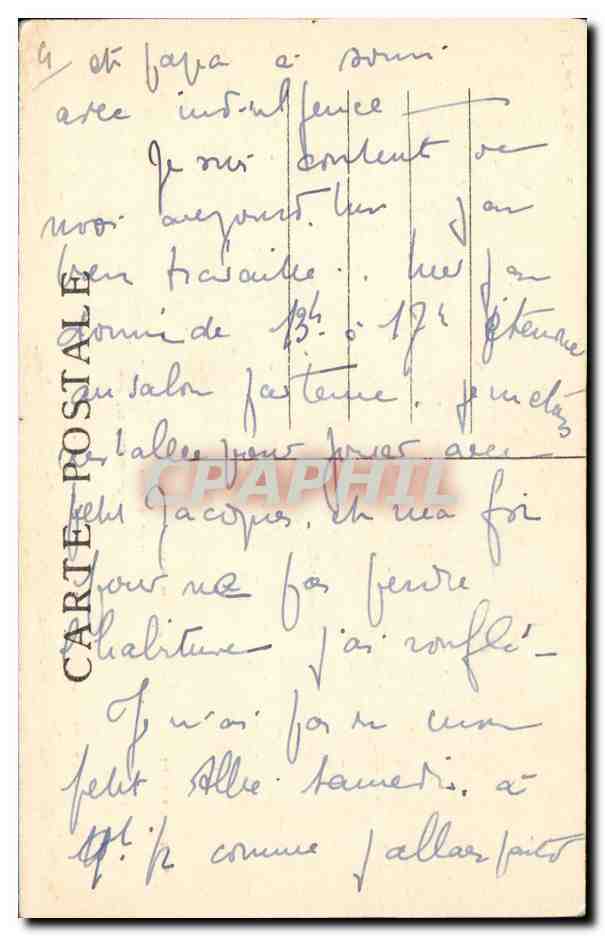 4
et papa a souri
avec indulgence
Je suis content de
moi aujourd'hui j'ai
bien travaillé.. hier j'ai
dormi de 13h à 17h étendue
au salon par terre. je m'étais
installée pour jouer avec
petit Jacques, et ma foi
pour ne pas perdre
l'habitude j'ai ronflé -
Je n'ai pas vu mon
petit samedi. à
comme j'allais
CARTE POSTALE
CPAPHIL